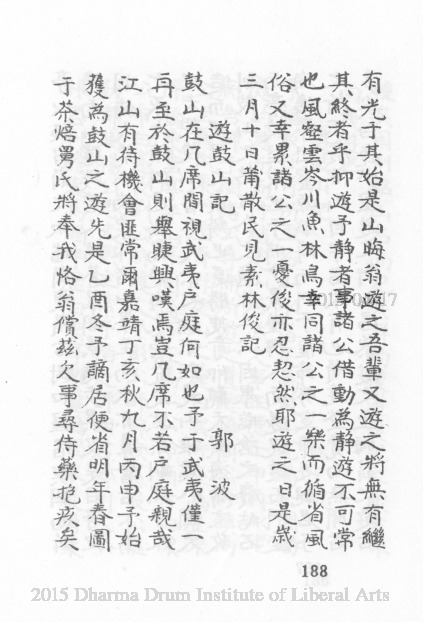 有光于其始是山晦翁遊之吾輩又遊之將無有繼
其終者乎抑遊予靜者事諸公借動為靜遊不可常
也風壑雲岑川魚林鳥幸同諸公之一樂而脩省風
俗又幸累諸公之一憂俊亦忍恝然耶遊之日是歲
三月十日莆散民見素林俊記
遊鼓山記
郭波
鼓山在几席間視武夷戶庭何如也予于武夷僅一
再至於鼓山則舉睫興嘆焉豈几席不若戶庭親哉
江山有待機會匪常爾嘉靖丁亥秋九月丙申予始
獲為鼓山之遊先是乙酉冬予謫居便省明年春圖
于茶焙舅氏將奉我恪翁償茲欠事尋侍藥抱疚矣
188
2015 Dharma Drum Institute of Liberal Arts